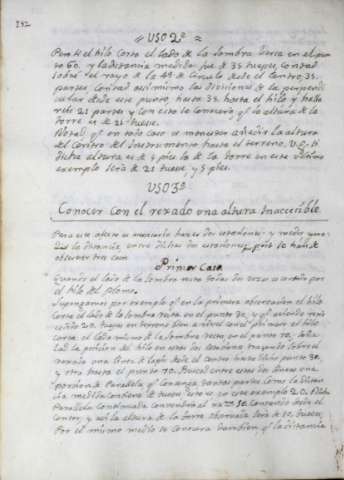 232
USO 2º
Pero si el hilo corta el lado de la sombra Versa en el pun
to 60. y la distancia medida fue de 35 tuesas, contad
sobre el rayo de la 4ª de Circulo desde el Centro, 35.
partes, contad assimismo las divisiones de la perpendi
cular desde este punto hasta 35 hasta el hilo y halla
reis 21 partes y con esto se conocera qe la altura de la
torre es de 21 tuesas.
Notad qe en todo caso es menester añadir la altura
del Centro del Instrumento hasta el terreno, V.G. si
dicha altura es de 5 pies la de la torre en este ultimo
exemplo sera de 21 tuesas y 5 pies.
USO 3º
Conocer con el rexado una altura Inaccesible
Para este efecto es menester hacer dos estaciones y medir
la distancia entre dichas dos estaciones, pero se han de
observar tres casos
Primer Caso
Quando el lado de la sombra recta todas dos veces es cortado por
el hilo del plomo.
Supongamos por exemplo qe en la primera observacion el hilo
corta el lado de la sombra recta en el punto 30, y qe
20. tuesas en terreno
corta el lado mismo de la sombra recta en el punto 70, seña
lad la posicion del hilo en estas dos estaciones trazando sobre el
rexado una linea de lapis desde el centro hasta dicho punto 30.
y otra hasta el punto 70. Buscad entre estas dos lineas una
porcion de Paralela qe contenga tantas partes como la distan
cia medida contiene de tuesas, esto es en este exemplo 20. Dicha
Paralela continuada convendra al numº 50 contando desde el
Centro, y assi la altura de la torre observada sera de 50. tuesas,
Por el mismo medio se conocera tambien qe la distancia